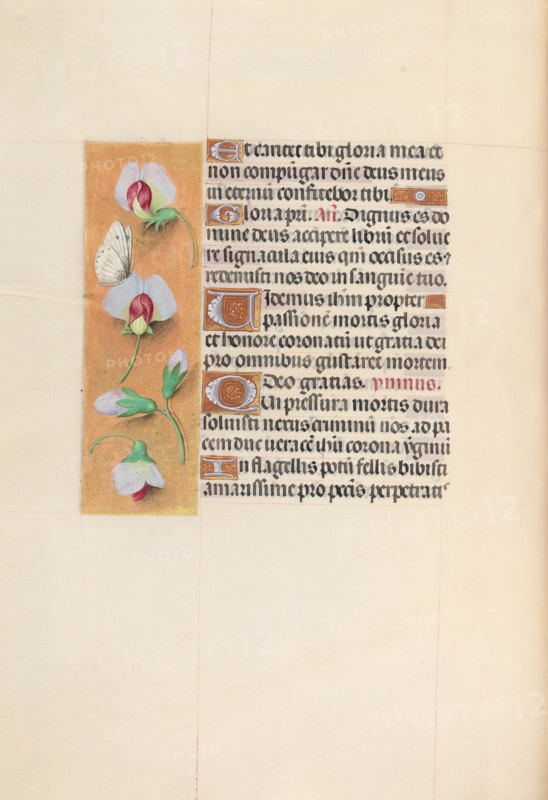 Et cantet tibi gloria mea et
non compūgar dn̄e deus meus
in eternū confitebor tibi.
Gloria pri. An̄. Dignus es do
mine deus accipere librū et solue
re signacula eius qm̄ occisus es ⁊
redemisti nos deo in sanguīe tuo.
Uidemus ihm̄ propter
passionē mortis gloria
et honore coronatū ut gratia dei
pro omnibus gustaret mortem.
Deo gratias. ymnus.
Qui pressura mortis dura
soluisti nexus criminū nos ad pa
cem duc uera cē ihū corona v̄ginū
In flagellis potū fellis bibisti
amarissime pro pccīs perpetratis
PHOTO12